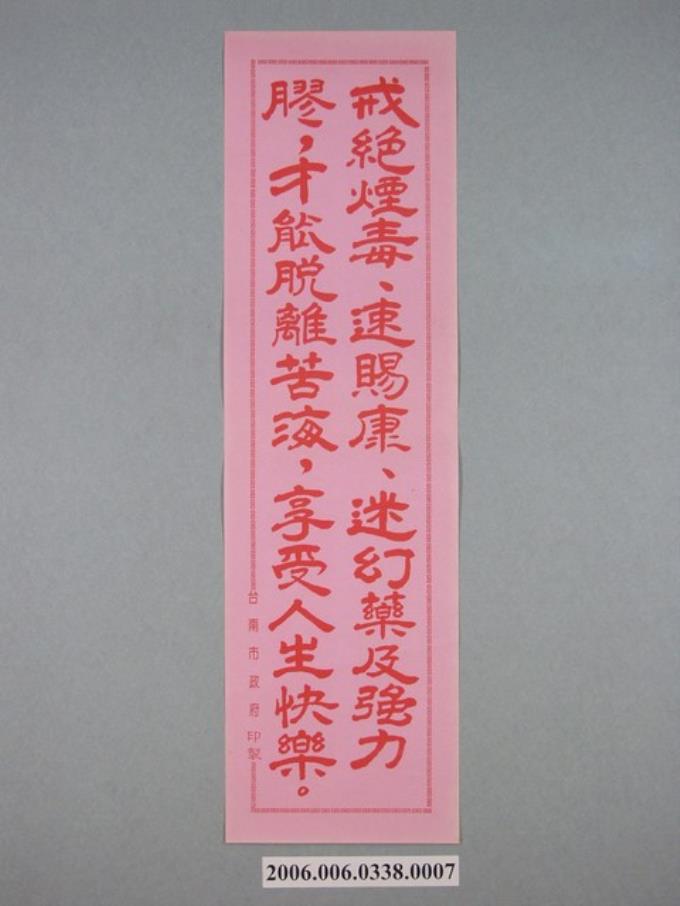 戒絕煙毒、速賜康、迷幻藥及強力
膠，才能脫離苦海，享受人生快樂。
台南市政府印製
2006.006.0338.0007